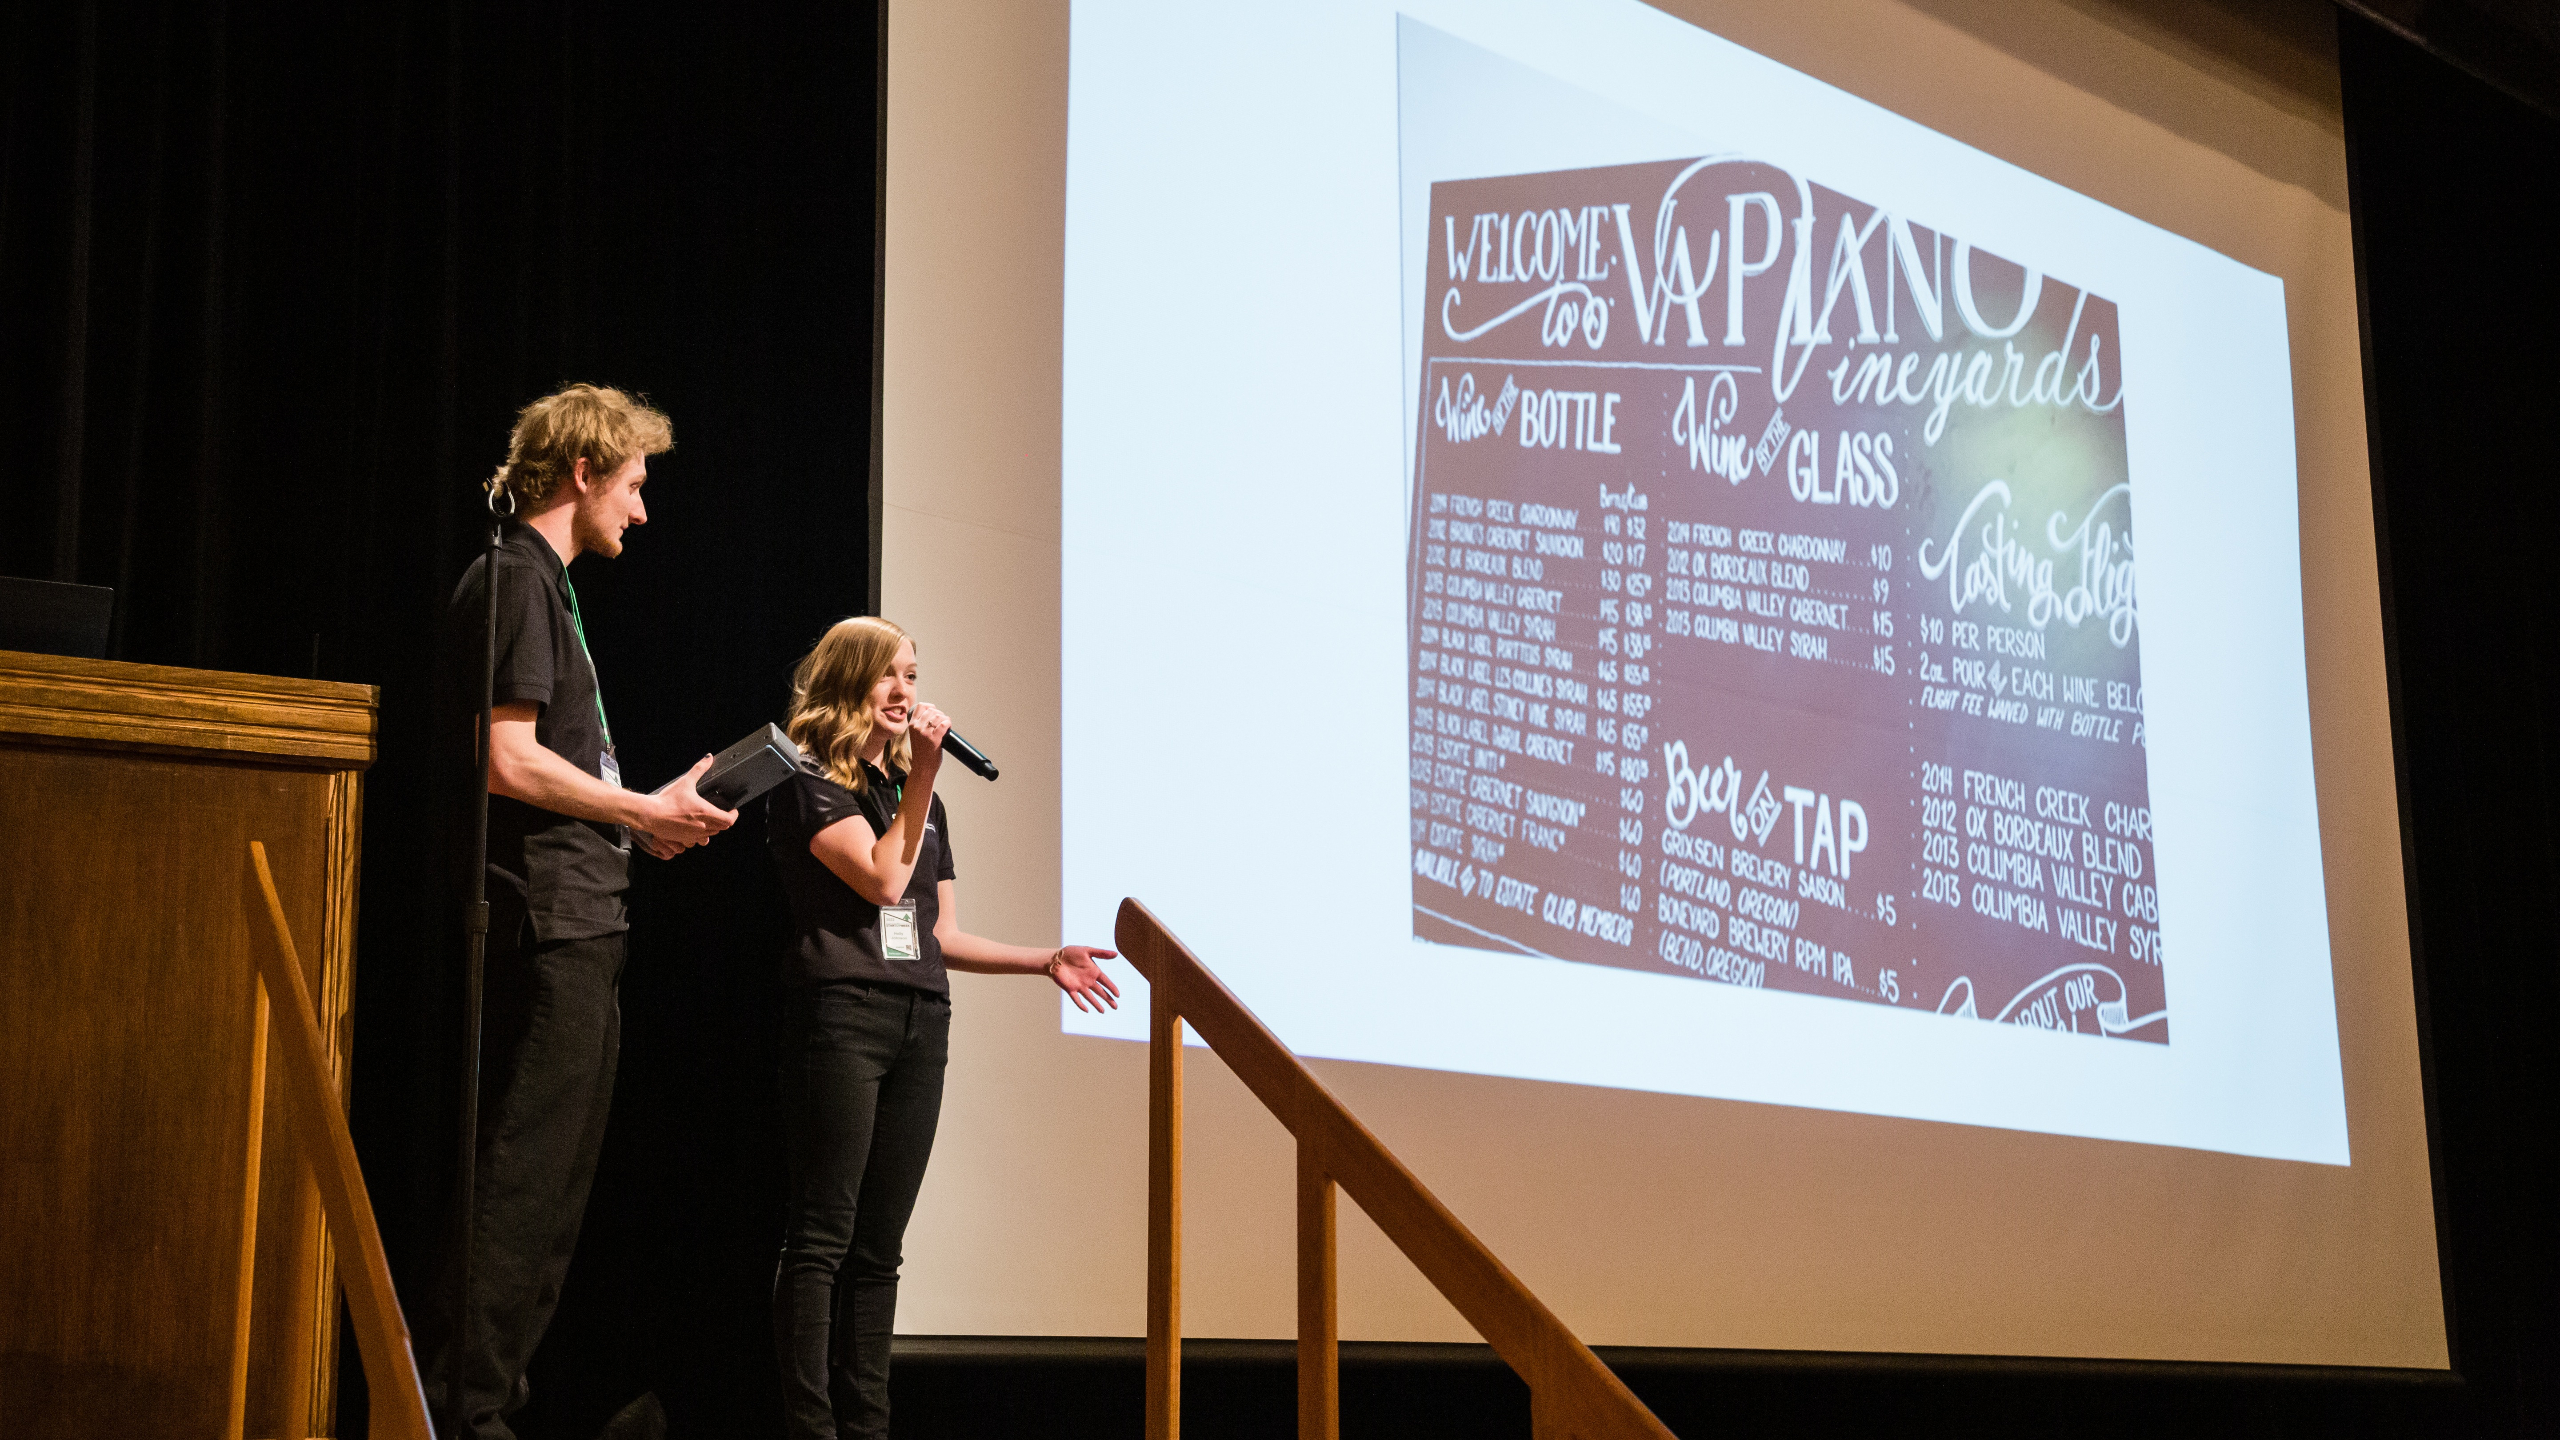 WELCOME to VA PIANO Vineyards
Wine BY THE BOTTLE
2014 FRENCH CREEK CHARDONNAY $40 $32
2012 BRUNO'S CABERNET SAUVIGNON $20 $17
2012 OX BORDEAUX BLEND $30
2013 COLUMBIA VALLEY CABERNET
2013 COLUMBIA VALLEY SYRAH
BLACK LABEL PORTTEUS SYRAH $65
BLACK LABEL LES COLLINES SYRAH $65
BLACK LABEL STONEY VINE SYRAH $65
BLACK LABEL DUBRUL CABERNET
2013 ESTATE $60
2013 ESTATE CABERNET SAUVIGNON* $60
ESTATE CABERNET FRANC* $60
ESTATE SYRAH* $60
AVAILABLE TO ESTATE CLUB MEMBERS
Wine BY THE GLASS
2014 FRENCH CREEK CHARDONNAY....$10
2012 OX BORDEAUX BLEND..........$9
2013 COLUMBIA VALLEY CABERNET....$15
2013 COLUMBIA VALLEY SYRAH.......$15
Beer ON TAP
GRIXSEN BREWERY SAISON....$5
(PORTLAND, OREGON)
BONEYARD BREWERY RPM IPA....$5
(BEND, OREGON)
Tasting Flig
$10 PER PERSON
2oz. POUR of EACH WINE BELO
FLIGHT FEE WAIVED WITH BOTTLE
2014 FRENCH CREEK CHAR
2012 OX BORDEAUX BLEND
2013 COLUMBIA VALLEY CAB
2013 COLUMBIA VALLEY SYR
ABOUT OUR